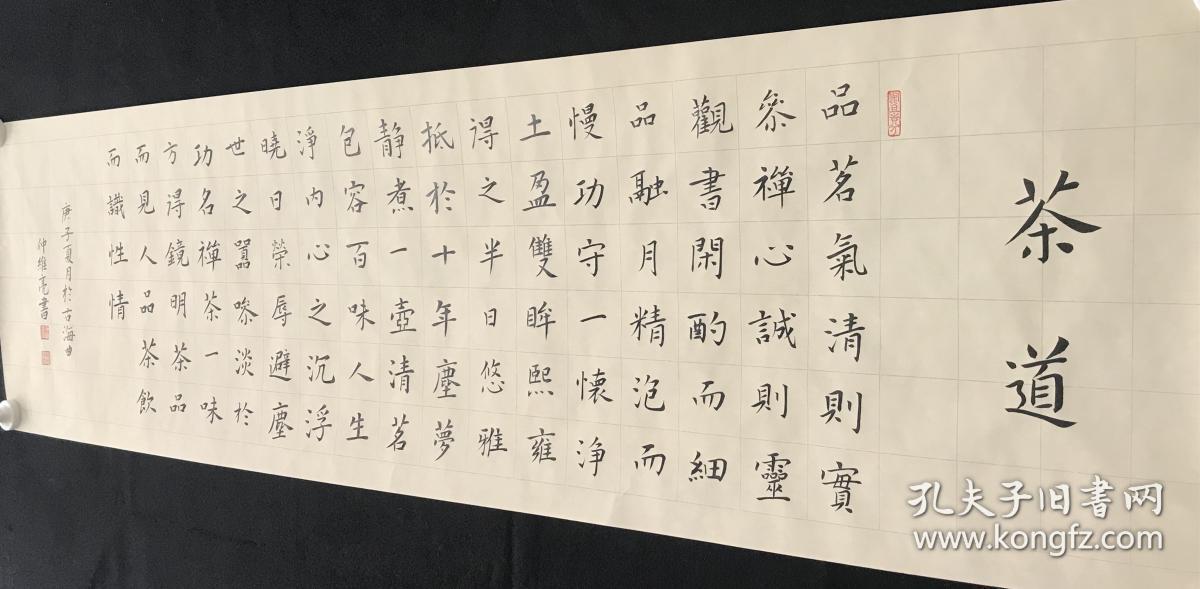 茶道
品茗氣清則實
叅禪心誠則靈
觀書閑酌而細
品融月精泡而
慢功守一懷淨
土盈雙眸熙雍
得之半日悠雅
抵於十年塵夢
静煮一壺清茗
包容百味人生
淨内心之沉浮
曉日榮辱避塵
世之囂嘇淡於
功名禅茶一味
方得鏡明茶品
而見人品茶飲
而識性情
庚子夏月於古海曲
仲維亮書
孔夫子旧书网
www.kongfz.com